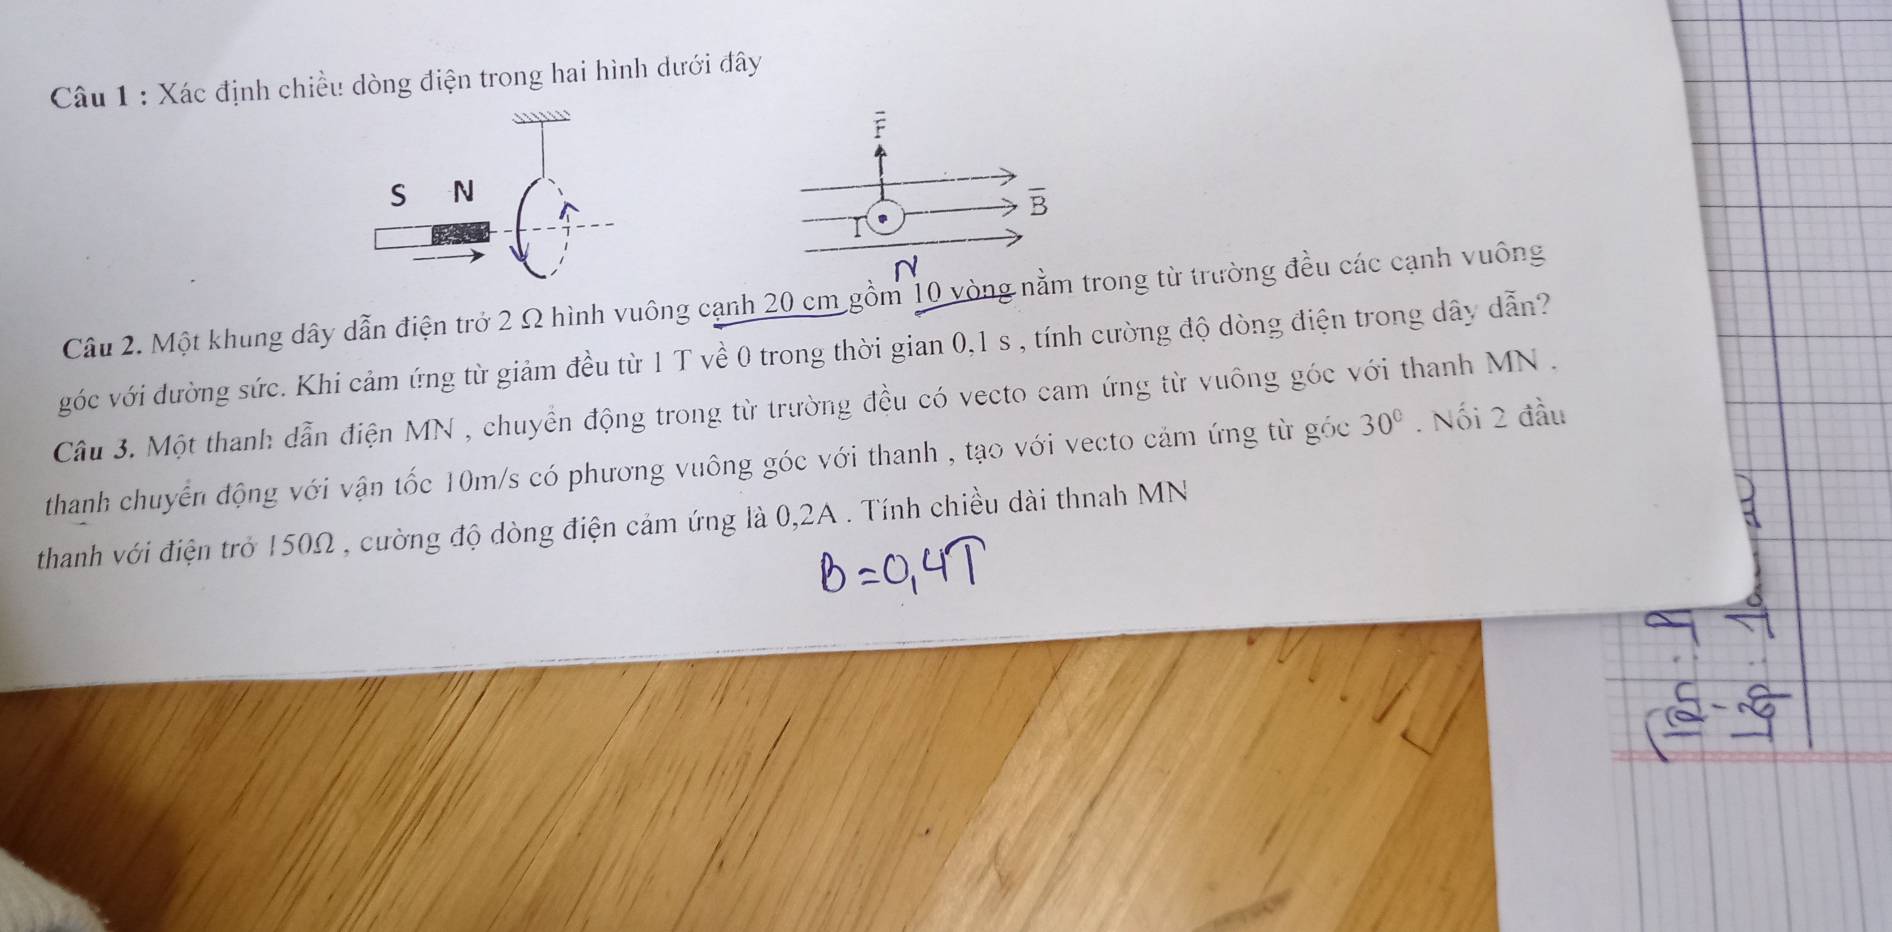 Câu 1 : Xác định chiều dòng điện trong hai hình dưới đây
S N
F
B
I
N
Câu 2. Một khung dây dẫn điện trở 2 Ω hình vuông cạnh 20 cm gồm 10 vòng nằm trong từ trường đều các cạnh vuông
góc với đường sức. Khi cảm ứng từ giảm đều từ 1 T về 0 trong thời gian 0,1 s , tính cường độ dòng điện trong dây dẫn?
Câu 3. Một thanh dẫn điện MN , chuyển động trong từ trường đều có vecto cam ứng từ vuông góc với thanh MN .
thanh chuyển động với vận tốc 10m/s có phương vuông góc với thanh , tạo với vecto cảm ứng từ góc 30⁰ . Nối 2 đầu
thanh với điện trở 150Ω , cường độ dòng điện cảm ứng là 0,2A . Tính chiều dài thnah MN
B = 0,4T
Tên :
Lớp :